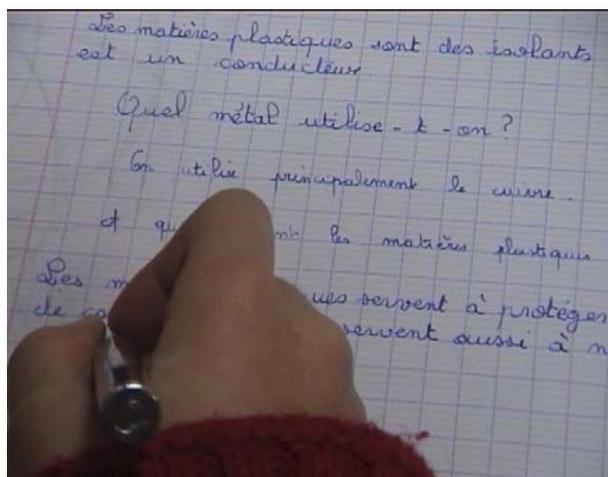 Les matières plastiques sont des isolants
est un conducteur
Quel métal utilise-t-on?
On utilise principalement le cuivre.
les matières plastiques
Les servent à protéger
de servent aussi à